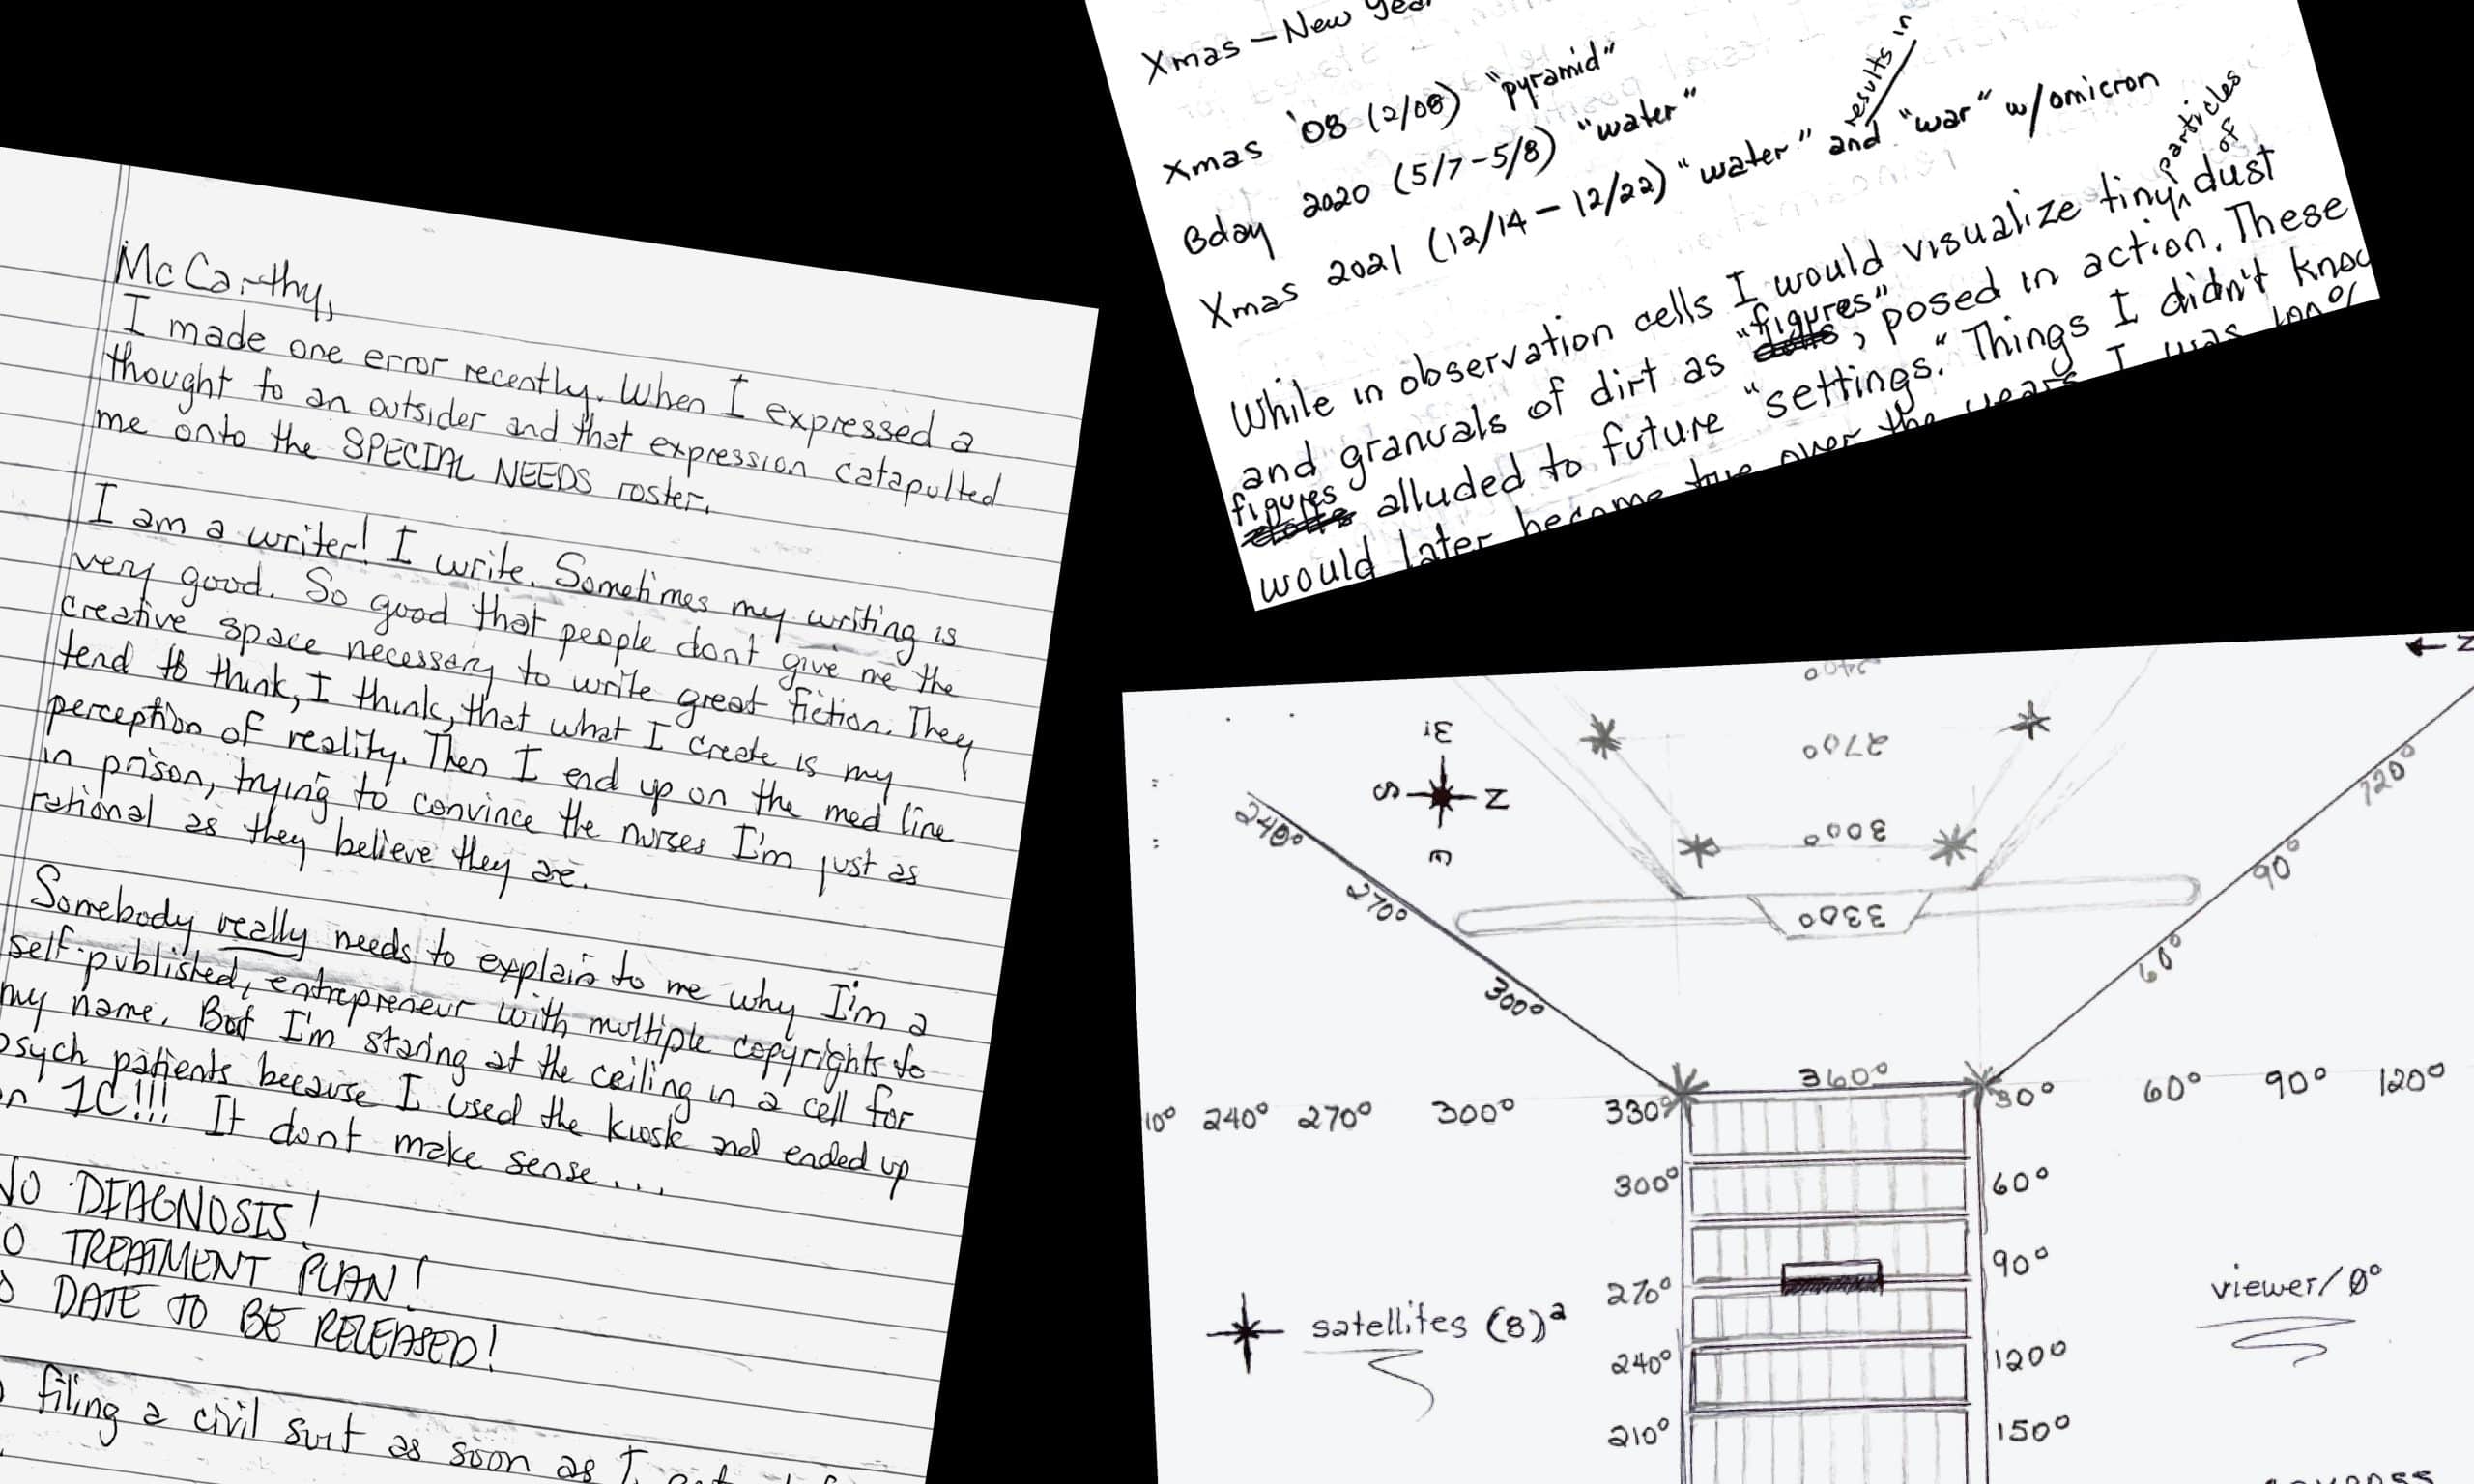 McCarthy,
I made one error recently. When I expressed a
thought to an outsider and that expression catapulted
me onto the SPECIAL NEEDS roster.
I am a writer! I write. Sometimes my writing is
very good. So good that people dont give me the
creative space necessary to write great fiction. They
tend to think, I think, that what I create is my
perception of reality. Then I end up on the med line
in prison, trying to convince the nurses I'm just as
rational as they believe they are.
Somebody really needs to explain to me why I'm a
self-published, entrepreneur with multiple copyrights to
my name. But I'm staring at the ceiling in a cell for
psych patients because I used the kiosk and ended up
on 1C!!! It dont make sense...
NO DIAGNOSIS!
O TREATMENT PLAN!
DATE TO BE RELEASED!
filing a civil suit as soon as I
Xmas – New Year
Xmas '08 (2/08) "pyramid"
Bday 2020 (5/7-5/8) "water"
results in
Xmas 2021 (12/14 – 12/22) "water" and "war" w/omicron
particles of
While in observation cells I would visualize tiny dust
and granuals of dirt as "figures", posed in action. These
figures alluded to future "settings." Things I didn't
would later become true over the years I was
N
240°
270°
300°
330°
S
N
E
240°
270°
300°
120°
90°
60°
10° 240° 270° 300° 330° 360° 30° 60° 90° 120°
300° 60°
270° 90°
240° 120°
210° 150°
satellites (8)ᵃ
viewer/0°